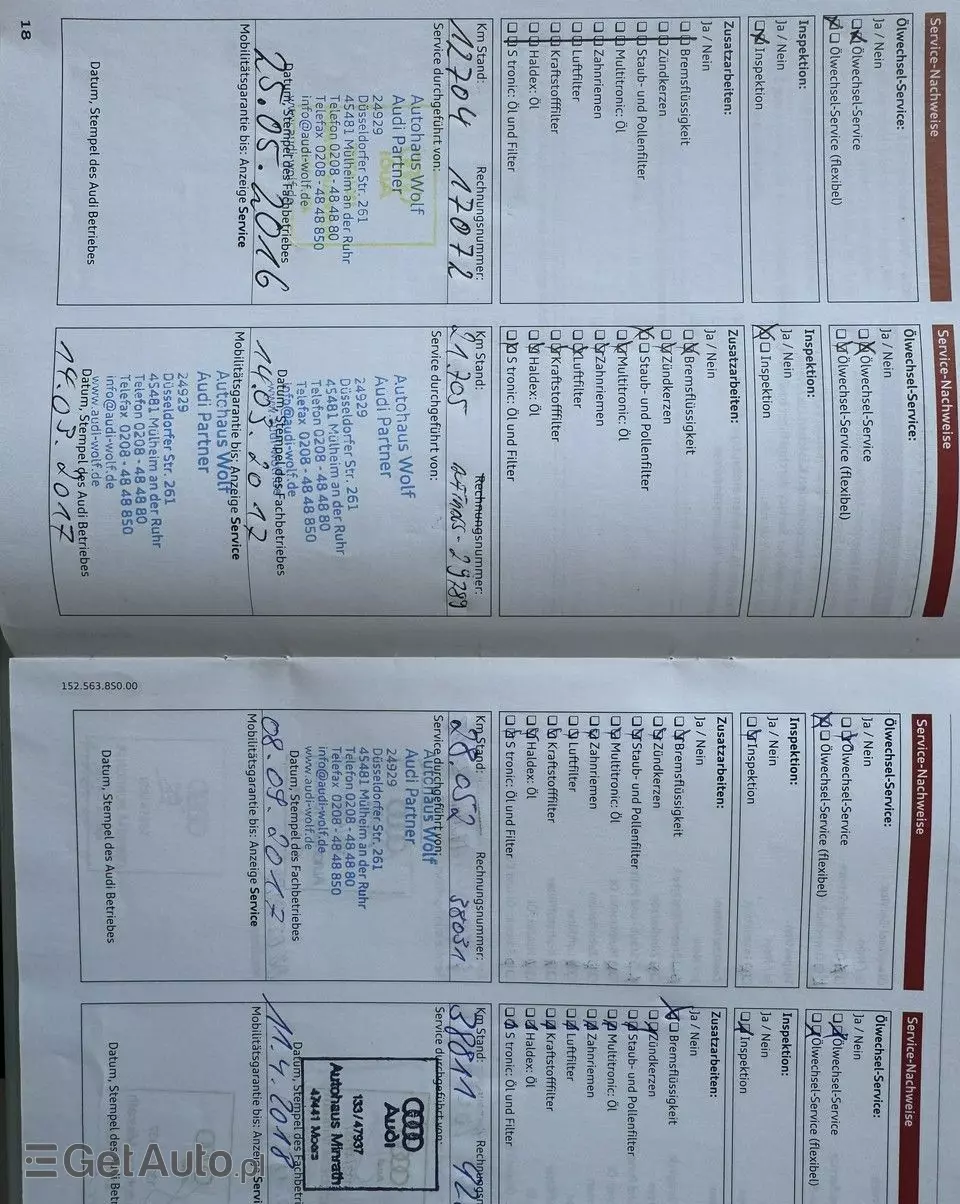 Service-Nachweise
Ölwechsel-Service:
Ja / Nein
Ölwechsel-Service
Ölwechsel-Service (flexibel)
Inspektion:
Ja / Nein
Inspektion
Zusatzarbeiten:
Ja / Nein
Bremsflüssigkeit
Zündkerzen
Staub- und Pollenfilter
Multitronic: Öl
Zahnriemen
Luftfilter
Kraftstofffilter
Haldex: Öl
S tronic: Öl und Filter
Km Stand: Rechnungsnummer:
12704 17072
Service durchgeführt von:
Autohaus Wolf
Audi Partner
24929
Düsseldorfer Str. 261
45481 Mülheim an der Ruhr
Telefon 0208 - 48 48 80
Telefax 0208 - 48 48 850
info@audi-wolf.de
Datum, Stempel des Fachbetriebes
25.05.2016
Mobilitätsgarantie bis: Anzeige Service
Datum, Stempel des Audi Betriebes
18
Service-Nachweise
Ölwechsel-Service:
Ja / Nein
Ölwechsel-Service
Ölwechsel-Service (flexibel)
Inspektion:
Ja / Nein
Inspektion
Zusatzarbeiten:
Ja / Nein
Bremsflüssigkeit
Zündkerzen
Staub- und Pollenfilter
Multitronic: Öl
Zahnriemen
Luftfilter
Kraftstofffilter
Haldex: Öl
S tronic: Öl und Filter
Km Stand: Rechnungsnummer:
21705 29789
Service durchgeführt von:
Autohaus Wolf
Audi Partner
24929
Düsseldorfer Str. 261
45481 Mülheim an der Ruhr
Telefon 0208 - 48 48 80
Telefax 0208 - 48 48 850
info@audi-wolf.de
Datum, Stempel des Fachbetriebes
14.03.2017
Mobilitätsgarantie bis: Anzeige Service
Autohaus Wolf
Audi Partner
24929
Düsseldorfer Str. 261
45481 Mülheim an der Ruhr
Telefon 0208 - 48 48 80
Telefax 0208 - 48 48 850
info@audi-wolf.de
www.audi-wolf.de
Datum, Stempel des Audi Betriebes
14.03.2017
152.563.850.00
Service-Nachweise
Ölwechsel-Service:
Ja / Nein
Ölwechsel-Service
Ölwechsel-Service (flexibel)
Inspektion:
Ja / Nein
Inspektion
Zusatzarbeiten:
Ja / Nein
Bremsflüssigkeit
Zündkerzen
Staub- und Pollenfilter
Multitronic: Öl
Zahnriemen
Luftfilter
Kraftstofffilter
Haldex: Öl
S tronic: Öl und Filter
Km Stand: Rechnungsnummer:
28.052 38031
Service durchgeführt von:
Autohaus Wolf
Audi Partner
24929
Düsseldorfer Str. 261
45481 Mülheim an der Ruhr
Telefon 0208 - 48 48 80
Telefax 0208 - 48 48 850
info@audi-wolf.de
www.audi-wolf.de
Datum, Stempel des Fachbetriebes
08.09.2017
Mobilitätsgarantie bis: Anzeige Service
Datum, Stempel des Audi Betriebes
Service-Nachweise
Ölwechsel-Service:
Ja / Nein
Ölwechsel-Service
Ölwechsel-Service (flexibel)
Inspektion:
Ja / Nein
Inspektion
Zusatzarbeiten:
Ja / Nein
Bremsflüssigkeit
Zündkerzen
Staub- und Pollenfilter
Multitronic: Öl
Zahnriemen
Luftfilter
Kraftstofffilter
Haldex: Öl
S tronic: Öl und Filter
Km Stand: Rechnungsnum
38811
Service durchgeführt von:
Audi
133/47937
Autohaus Minrath
47441 Moers
Datum, Stempel des Fachbetr
11.4.2018
Mobilitätsgarantie bis: Anzeige Servi
Datum, Stempel des Audi Bet
GetAuto.pl